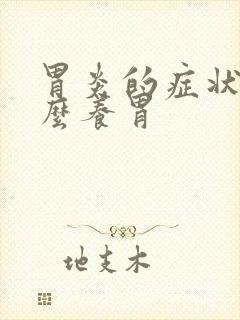 胃炎的症状
麽养胃
地支木